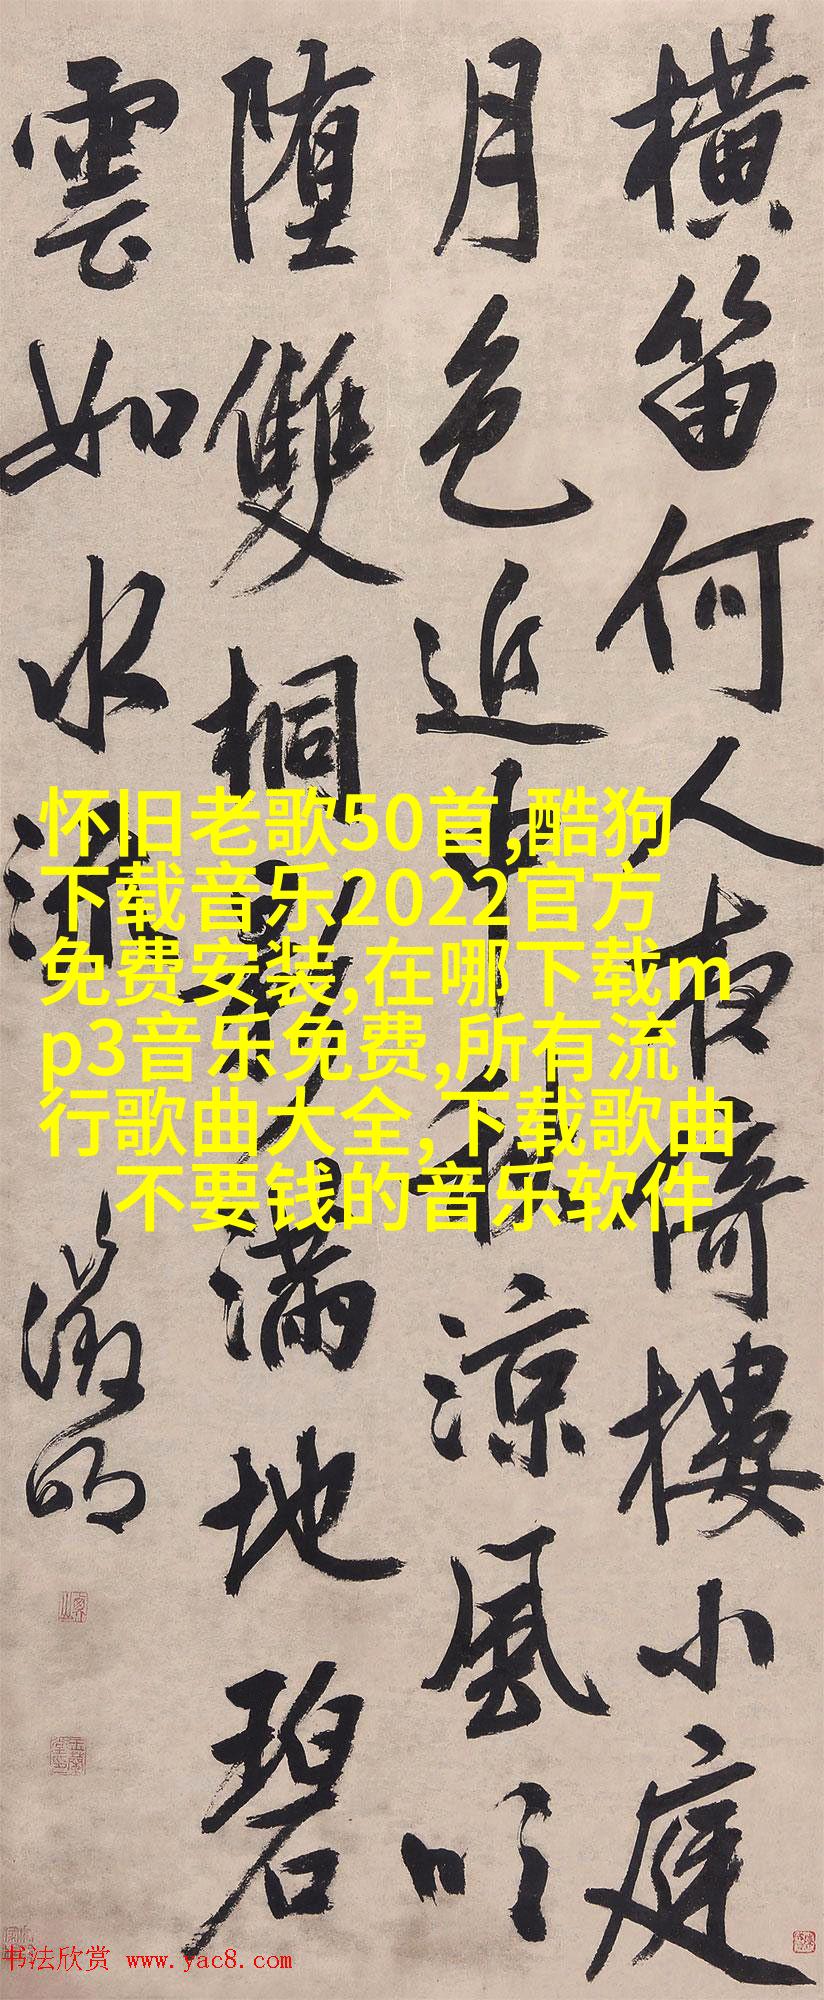 橫笛何人夜倚樓小庭
月色近中秋涼風吹
堕雙桐影滿地碧
雲如水流
徵明
怀旧老歌50首,酷狗
下载音乐2022官方
免费安装,在哪下载m
p3音乐免费,所有流
行歌曲大全,下载歌曲
不要钱的音乐软件
书法欣赏 www.yac8.com